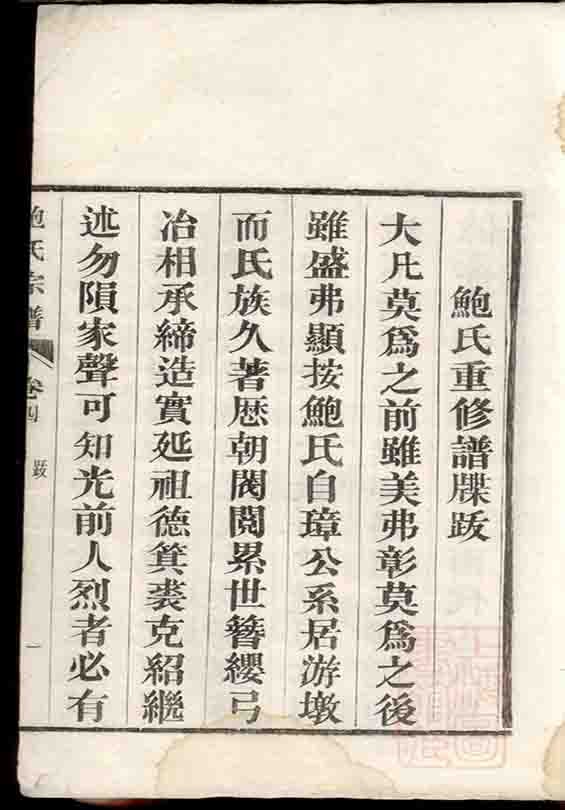 鮑氏重修譜牒跋
大凡莫爲之前雖美弗彰莫爲之後
雖盛弗顯按鮑氏自璋公系居游墩
而氏族久著歴朝閥閲累世簪纓弓
冶相承締造實延祖德箕裘克紹繼
述勿隕家聲可知光前人烈者必有
鮑氏宗譜 卷四 跋 一